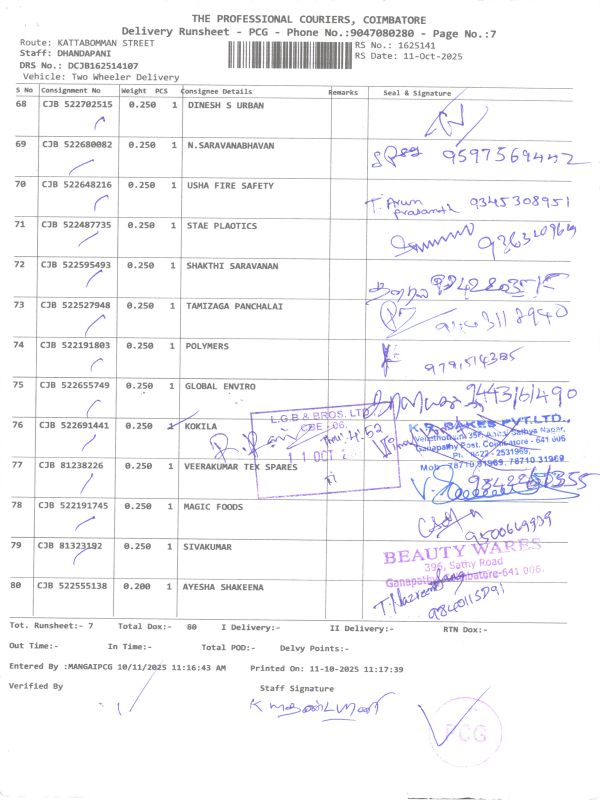 THE PROFESSIONAL COURIERS, COIMBATORE
Delivery Runsheet - PCG - Phone No.:9047080280 - Page No.:7
Route: KATTABOMMAN STREET RS No.: 1625141
Staff: DHANDAPANI RS Date: 11-Oct-2025
DRS No.: DCJB162514107
Vehicle: Two Wheeler Delivery
S No Consignment No Weight PCS Consignee Details Remarks Seal & Signature
68 CJB 522702515 0.250 1 DINESH S URBAN
69 CJB 522680082 0.250 1 N.SARAVANABHAVAN
9597569442
70 CJB 522648216 0.250 1 USHA FIRE SAFETY
T. Arun
Prasanth 9345308951
71 CJB 522487735 0.250 1 STAE PLAOTICS
72 CJB 522595493 0.250 1 SHAKTHI SARAVANAN
73 CJB 522527948 0.250 1 TAMIZAGA PANCHALAI
74 CJB 522191803 0.250 1 POLYMERS
75 CJB 522655749 0.250 1 GLOBAL ENVIRO
L.G.B & BROS. LTD
76 CJB 522691441 0.250 1 KOKILA
CBE - 06.
K.R. BAKES PVT.LTD.,
Ganapathy Post, Coimbatore - 641 006
Ph: 0422 - 2531969,
Mob: 78710 31969, 78710 31969
11 OCT
77 CJB 81238226 0.250 1 VEERAKUMAR TEX SPARES
78 CJB 522191745 0.250 1 MAGIC FOODS
9500669939
79 CJB 81323192 0.250 1 SIVAKUMAR
BEAUTY WARES
396, Sathy Road
Ganapathy, Coimbatore-641 006.
80 CJB 522555138 0.200 1 AYESHA SHAKEENA
9840115791
Tot. Runsheet:- 7 Total Dox:- 80 I Delivery:- II Delivery:- RTN Dox:-
Out Time:- In Time:- Total POD:- Delvy Points:-
Entered By :MANGAIPCG 10/11/2025 11:16:43 AM Printed On: 11-10-2025 11:17:39
Verified By Staff Signature
PCG